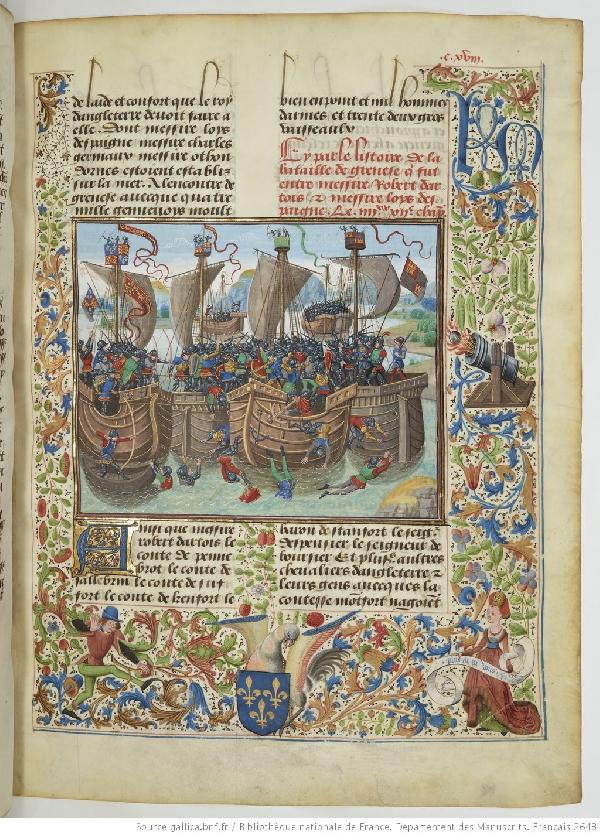 .c.xviii.
de laide et confort que le roy
dangleterre devoit faire a
elle. Dont messire loys
despaigne messire charles
germaux messire othon
dornes estoient establiz
sur la mer. A lencontre de
grenese avecque quatre
mille genevoys moult
bien en point et mil hommes
darmes et trente deux gros
vaisseaulx
Cy parle listoire de la
bataille de grenese q̄ fut
entre messire Robert dar
tois ⁊ messire loys des
paigne
Ainsi que messire
robert dartois le
conte de penne
brot le conte de
salleb'rin le conte de suf
fort le conte de kenfort le
baron de stanfort le seig.
despensier le seigneur de
boursier Et plus̄ aultres
chevaliers dangleterre ⁊
leurs gens avecques la
contesse montfort nagoiēt
Source gallica.bnf.fr / Bibliothèque nationale de France. Département des Manuscrits. Français 2643